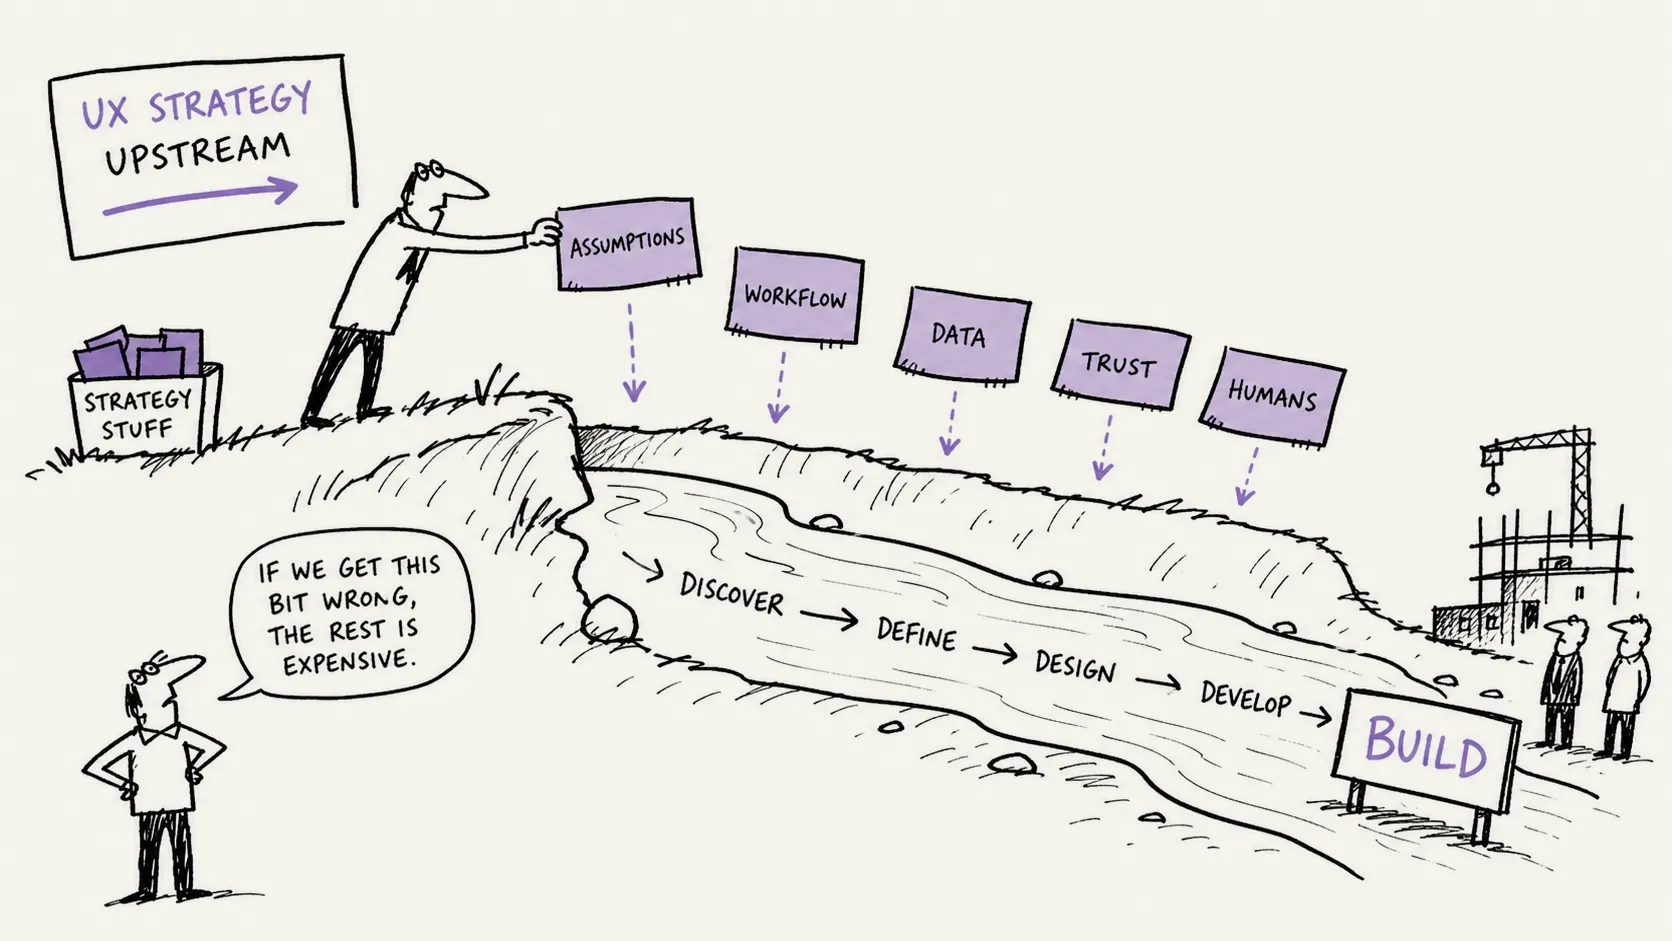 UX STRATEGY
UPSTREAM
STRATEGY
STUFF
ASSUMPTIONS
WORKFLOW
DATA
TRUST
HUMANS
IF WE GET THIS
BIT WRONG,
THE REST IS
EXPENSIVE.
DISCOVER
DEFINE
DESIGN
DEVELOP
BUILD